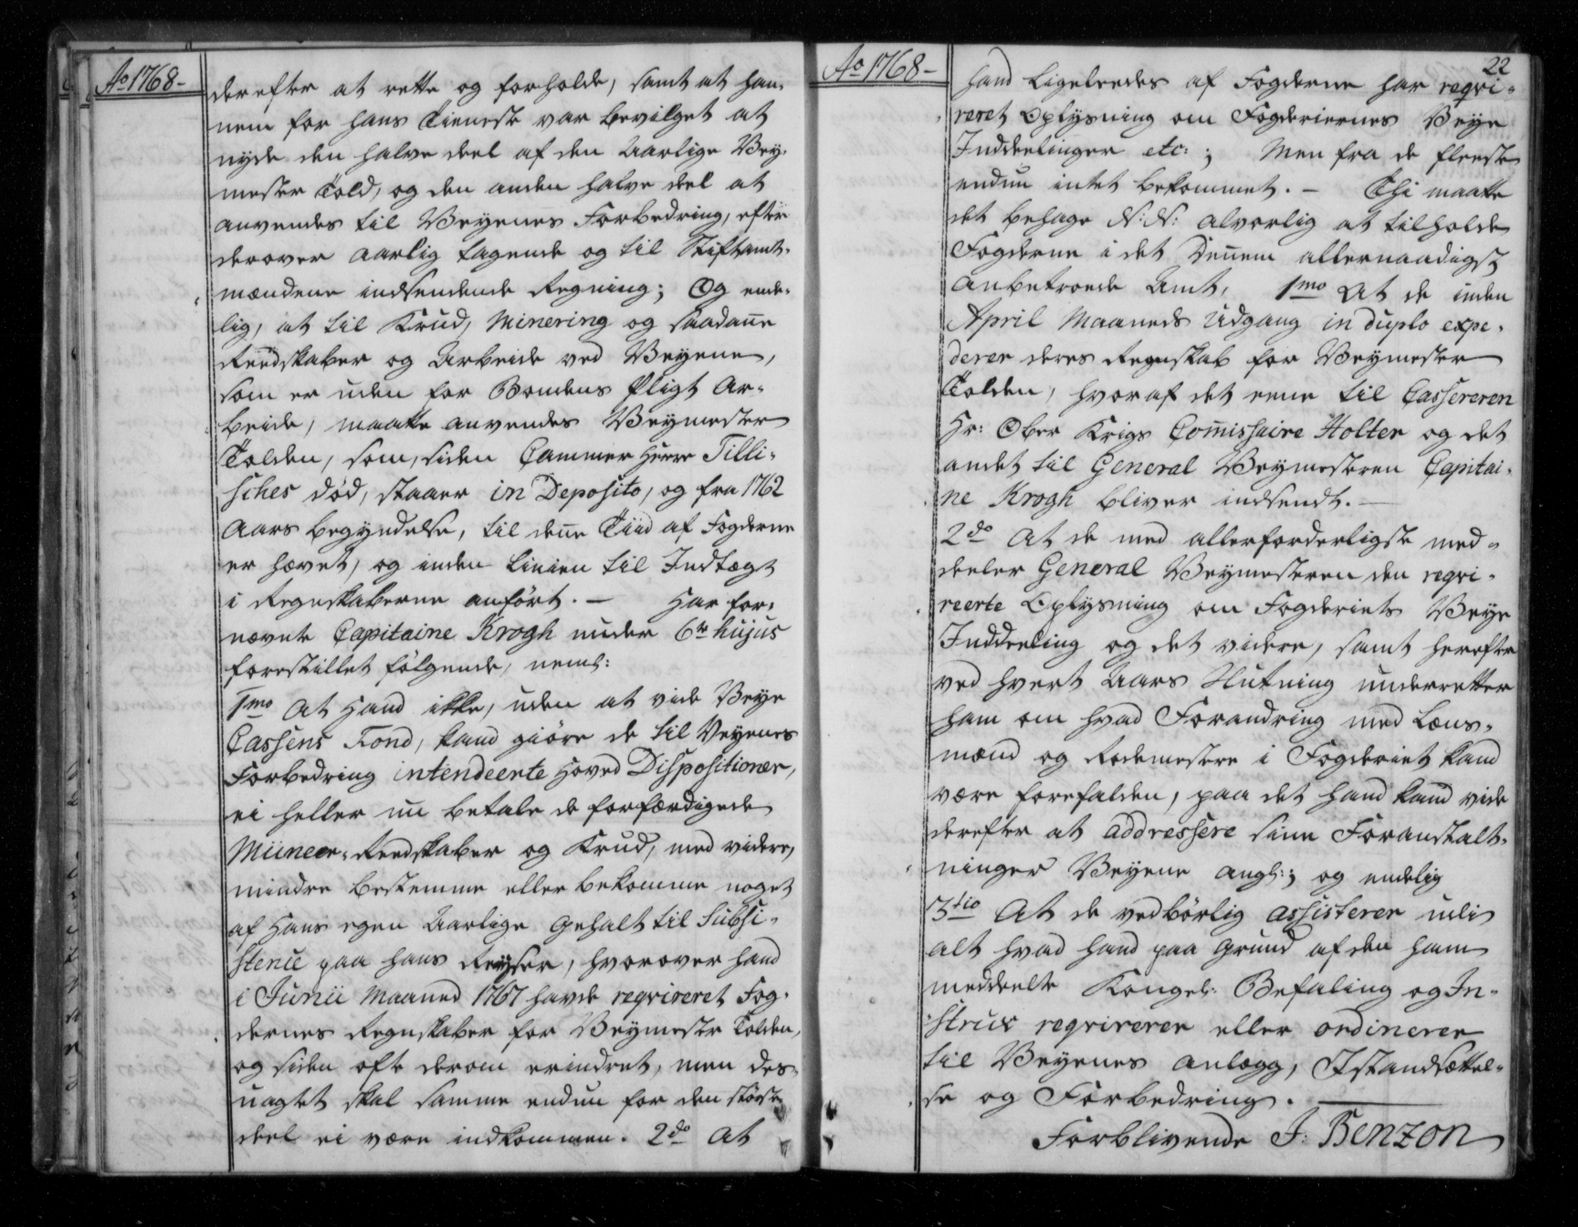 Ao 1768-
derefter at rette og forholde, samt at han-
nem for hans Tieneste var bevilget at
nyde den halve deel af den Aarlige Vey-
mester Told, og den anden halve deel at
anvendes til Veyenes Forbedring, efter
derover aarlig tagende og til Stiftamt-
mændene indsendende Regning; Og ende-
lig, at til Krud, Minering og saadanne
Reedskaber og Arbeide ved Veyene,
som er uden for Bondens Pligt Ar-
beide, maatte anvendes Veymester
Tolden, som, siden Cammer Herre Tilli-
sches Død, staaer in Deposito, og fra 1762
Aars begyndelse, til denne Tiid af Fogderne
er hævet, og inden Linien til Indtægt
i Regnskaberne anført. - Har for-
nævnte Capitaine Krogh under 6te hujus
forestillet følgende, neml:
1mo At Hand ikke, uden at vide Veye
Cassens Fond, kand giøre de til Veyenes
Forbedring intendeerte Hoved Dispositioner,
ei heller nu betale de forfærdigede
Mineer-Reedskaber og Krud, med videre,
mindre bestemme eller bekomme noget
af Hans egen Aarlige Gehalt til Subsi-
stence paa hans Reyser, hvorover hand
i Junii Maaned 1767 havde reqvireret Fog-
dernes Regnskaber for Veymester Tolden,
og siden ofte derom erindret, men des-
uagtet skal samme endnu for den største
deel ei være indkommen. 2do At
Ao 1768-
22
hand Ligeleedes af Fogderne har reqvi-
reret Oplysning om Fogderiernes Veye
Inddeelinger etc: ; Men fra de fleeste
endnu intet bekommet. - Thi maatte
det behage N: N: alvorlig at tilholde
Fogderne i det Dennem allernaadigst
anbetroede Amt, 1mo At de inden
April Maaneds Udgang in duplo expe-
derer deres Regnskab for Veymester
Tolden, hvoraf det eene til Cassereren
Hr: Ober Krigs Commissaire Holter og det
andet til General Veymesteren Capitai-
ne Krogh bliver indsendt. -
2do At de med allerforderligste med-
deeler General Veymesteren den reqvi-
reerte Oplysning om Fogderiets Veye
Inddeeling og det videre, samt herefter
ved hvert Aars Slutning underretter
ham om hvad Forandring med Læns-
mænd og Rodemestere i Fogderiet kand
være forefalden, paa det hand kand vide
derefter at addressere sine Foranstalt-
ninger Veyene angl:; og endelig
3tio At de vedbørlig assisterer udi
alt hvad hand paa Grund af den ham
meddeelte Kongel: Befaling og In-
strux reqvirerer eller ordinerer
til Veyenes Anlægg, Istandsættel-
se og Forbedring.
Forblivende J: Benzon